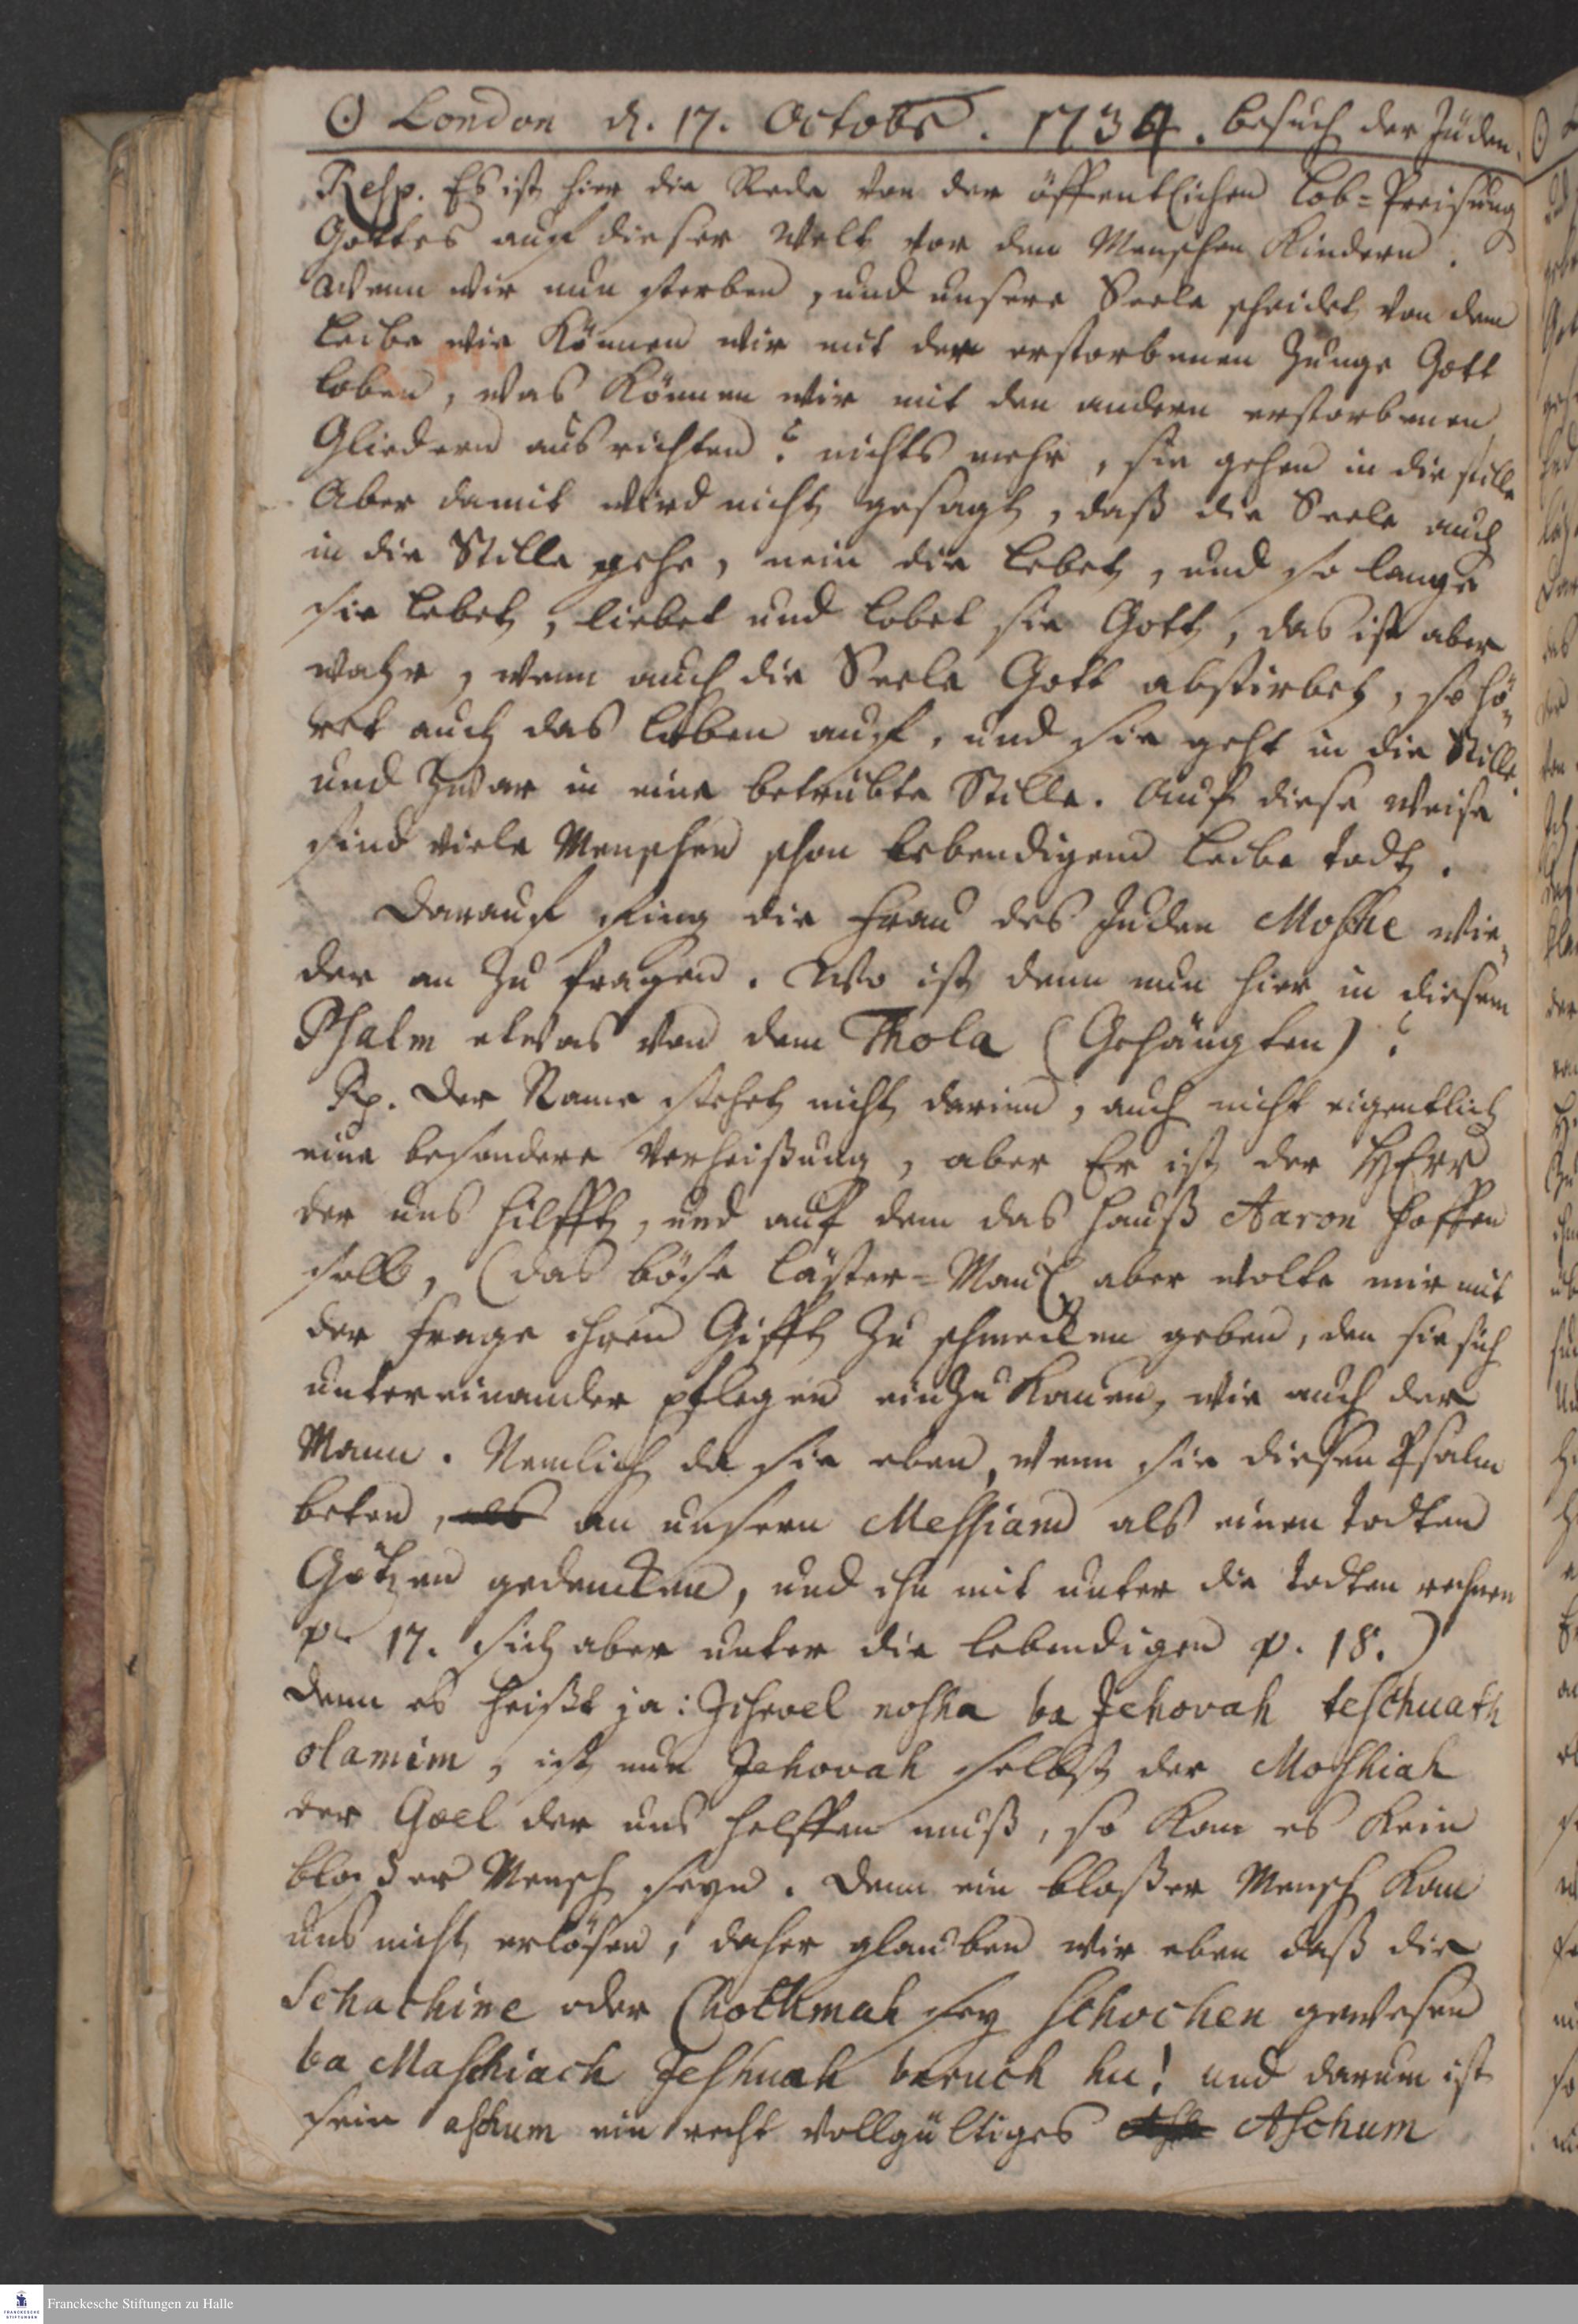 ☉ London d. 17. Octobr. 1734. besuch der Jüden.
Resp. Es ist hier die Rede von der öffentlichen Lob=Preisung
Gottes auf dieser Welt vor den Menschen Kindern.
Wenn wir nun sterben, und unsere Seele scheidet von dem
Leibe wie können wir mit der erstorbenen Zunge Gott
loben, was können wir mit den andern erstorbenen
Gliedern ausrichten? nichts mehr, sie gehen in die stille
Aber damit wird nicht gesagt, daß die Seele auch
in die Stille gehe, nein die lebet, und so lange
sie lebet, liebet und lobet sie Gott, das ist aber
wahr, wenn auch die Seele Gott abstirbet, so hö=
ret auch das loben auf, und sie geht in die Stille,
und zwar in eine betrübte Stille. Auf diese Weise
sind viele Menschen schon lebendigem Leibe todt.
Darauf fing die Frau des Juden Moshe wie=
der an zu fragen. Wo ist denn nun hier in diesem
Psalm etwas von dem Thola (Gehängten)?
Rp. Der Name stehet nicht darinn, auch nicht eigentlich
eine besondere Verheißung, aber Er ist der HErr
der uns hilfft, und auf dem das Hauß Aaron hoffen
soll, (das böse Läster=Maul aber wolte mir mit
der Frage ihren Gifft zu schmecken geben, den sie sich
untereinander pflegen einzukauen, wie auch der
Mann. Nemlich da sie eben, wenn sie diesen Psalm
beten, als an unsern Messiam als einen todten
Götzen gedencken, und ihn mit unter die todten rechnen
p. 17. sich aber unter die lebendigen p. 18.)
Denn es heißt ja: Jisroel nosha ba Jehovah teschuath
olamim, ist nun Jehovah selbst der Moshiah
der Goel der uns helffen muß, so kan es kein
bloßer Mensch seyn. Denn ein bloßer Mensch kan
uns nicht erlösen, daher glauben wir eben daß die
Schachine oder Chockmah sey schochen gewesen
ba Maschiach Jeshuah baruch hu! und darum ist
sein aschum ein recht vollgültiges Aschum
Franckesche Stiftungen zu Halle